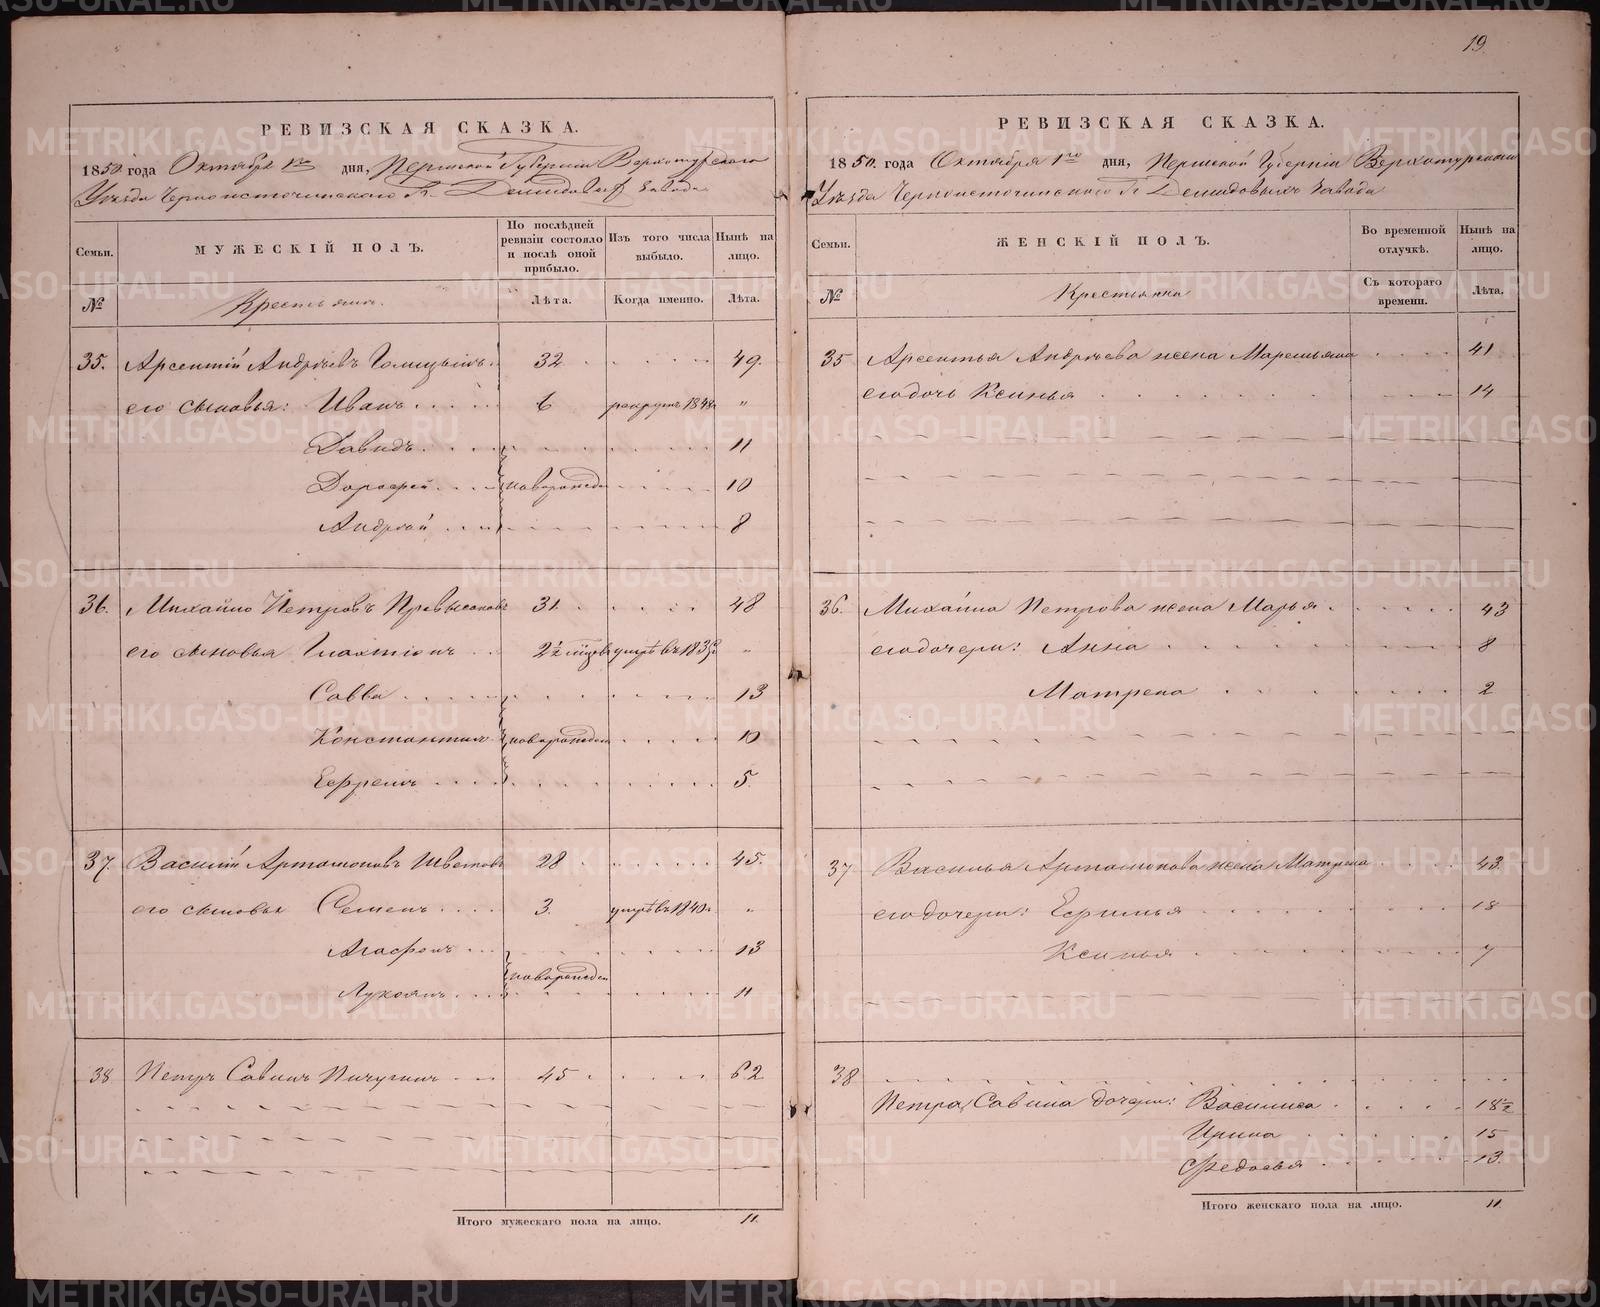 19.
РЕВИЗСКАЯ СКАЗКА.
1850 года Октября 1го дня, Пермской Губерніи Верхотурскаго
Уѣзда Черноисточинскаго Гг. Демидовыхъ завода
Семьи.
МУЖЕСКІЙ ПОЛЪ.
По послѣдней ревизіи состояло и послѣ оной прибыло.
Изъ того числа выбыло.
Нынѣ на лицо.
№
Крестьяне.
Лѣта.
Когда именно.
Лѣта.
35. Арсентій Андреевъ 32 49.
его сыновья: Иванъ 6 рекрутъ 1848 "
Давидъ 11
Дорофей новорожден 10
Андрей 8
36. Михайло Петровъ 31. 48
его сыновья 2½ умре въ 183 "
Савва 13
Константинъ новорожден 10
Ефремъ 5.
37. Василій Артамоновъ Шветовъ 28 45.
его сыновья Семенъ 3. умре въ 1840 "
Агафонъ 13
новорожден
Лукоянъ 11
38 Петръ Савинъ Пичугинъ 45 62
Итого мужескаго пола на лицо. 11.
РЕВИЗСКАЯ СКАЗКА.
1850. года Октября 1го дня, Пермской Губерніи Верхотурскаго
Уѣзда Черноисточинскаго Гг Демидовыхъ Завода
Семьи.
ЖЕНСКІЙ ПОЛЪ.
Во временной отлучкѣ.
Нынѣ на лицо.
№
Крестьянка
Съ котораго времени.
Лѣта.
35 Арсентья Андреева жена Маремьяна 41
его дочь Ксинья 14
36. Михайла Петрова жена Марья 43
его дочери: Анна 8
Матрена 2
37 Василья Артамонова жена Матрена 43.
его дочери: Ефимья 18
Ксинья 7
38
Петра Савина дочери: Василиса 18½
Ирина 15
Федосья 13.
Итого женскаго пола на лицо. 11.
METRIKI.GASO-URAL.RU